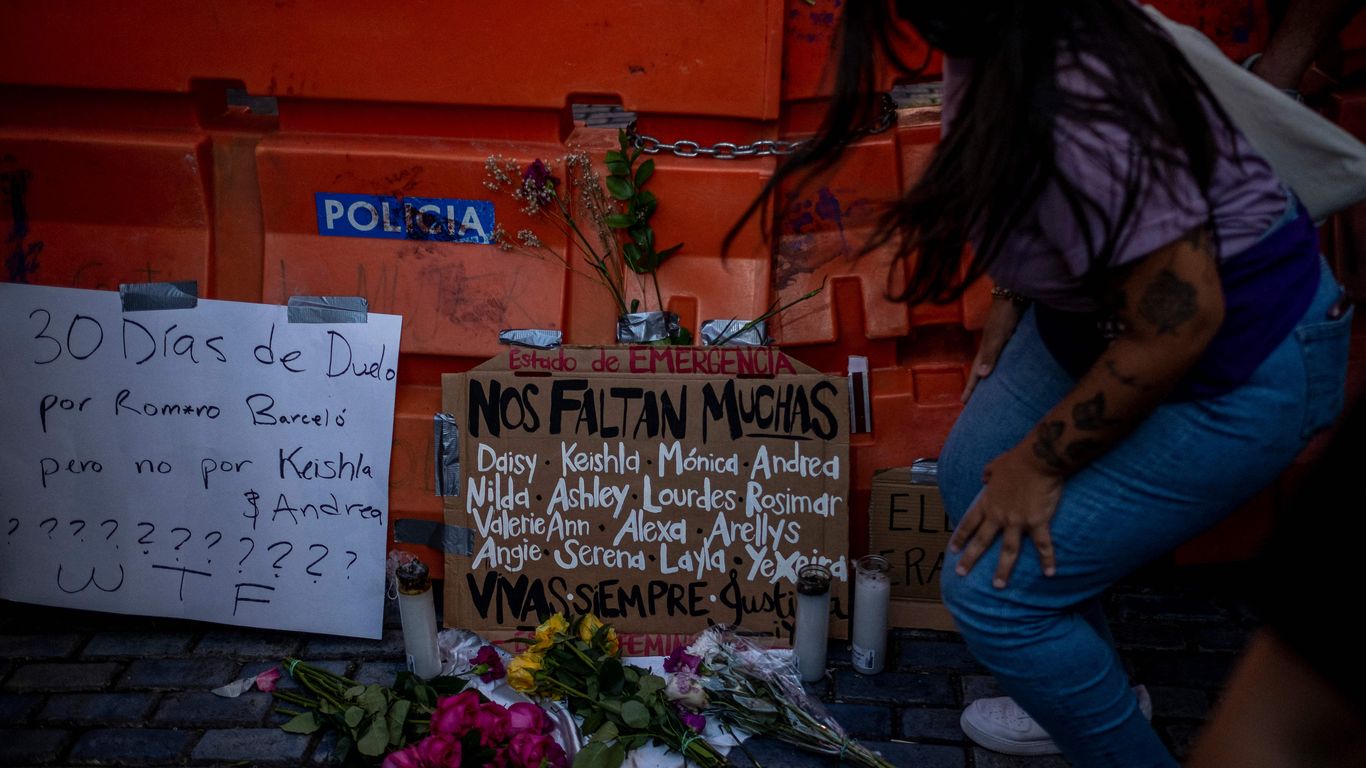 POLICIA
30 Días de Duelo
por Rom*ro Barceló
pero no por Keishla
$ Andrea
? ? ? ? ? ? ? ? ? ? ?
W T F
Estado de EMERGENCIA
NOS FALTAN MUCHAS
Daisy · Keishla · Mónica · Andrea
Nilda · Ashley · Lourdes · Rosimar
Valerie Ann · Alexa · Arellys
Angie · Serena · Layla · Yexeira
VIVAS · SIEMPRE · Justicia
FEMINI
ELL
ERA